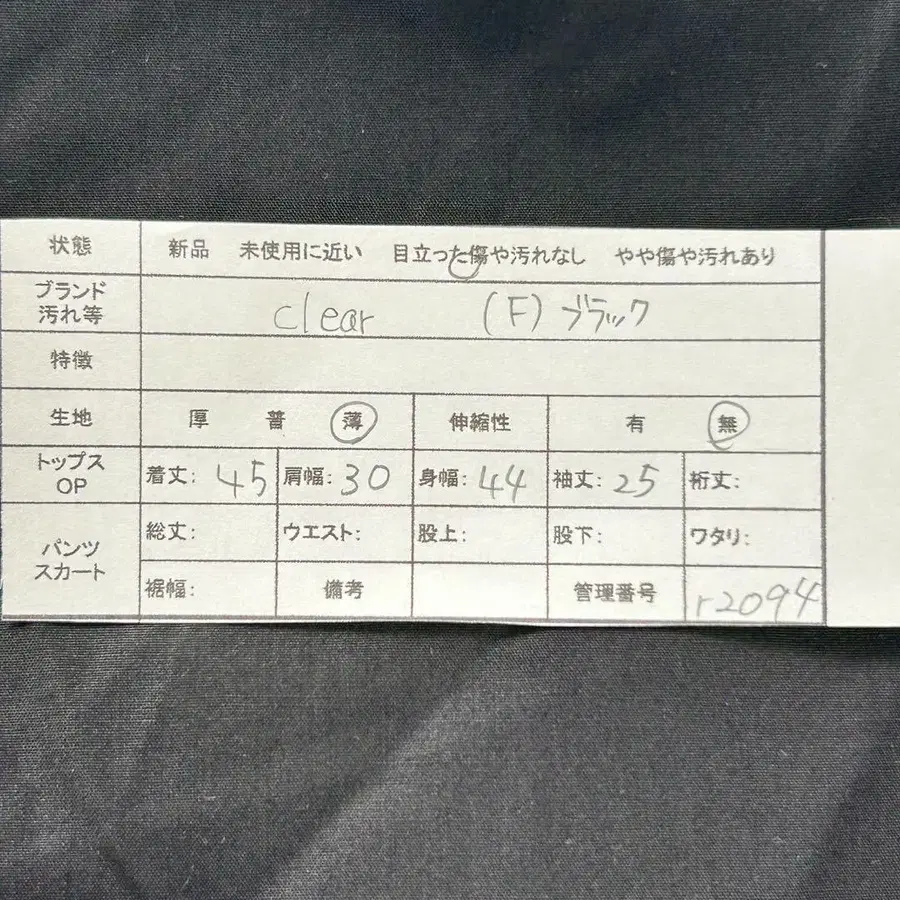 状態 新品 未使用に近い 目立った傷や汚れなし やや傷や汚れあり
ブランド
汚れ等 clear (F) ブラック
特徴
生地 厚 普 薄 伸縮性 有 無
トップス
OP 着丈: 45 肩幅: 30 身幅: 44 袖丈: 25 裄丈:
パンツ
スカート 総丈: ウエスト: 股上: 股下: ワタリ:
裾幅: 備考 管理番号 r2094